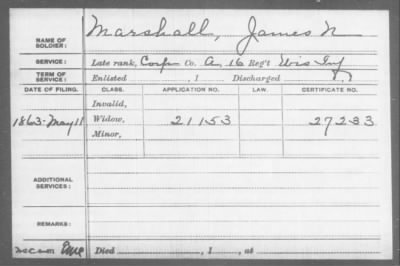 NAME OF SOLDIER: Marshall, James N
SERVICE: Late rank, Corp Co. A, 16 Reg't Wis Inf
TERM OF SERVICE: Enlisted , 1 Discharged , 1
DATE OF FILING. CLASS. APPLICATION NO. LAW. CERTIFICATE NO.
Invalid,
1863-May 11 Widow, 21153 27233
Minor,
ADDITIONAL SERVICES:
REMARKS:
Died , 1 , at